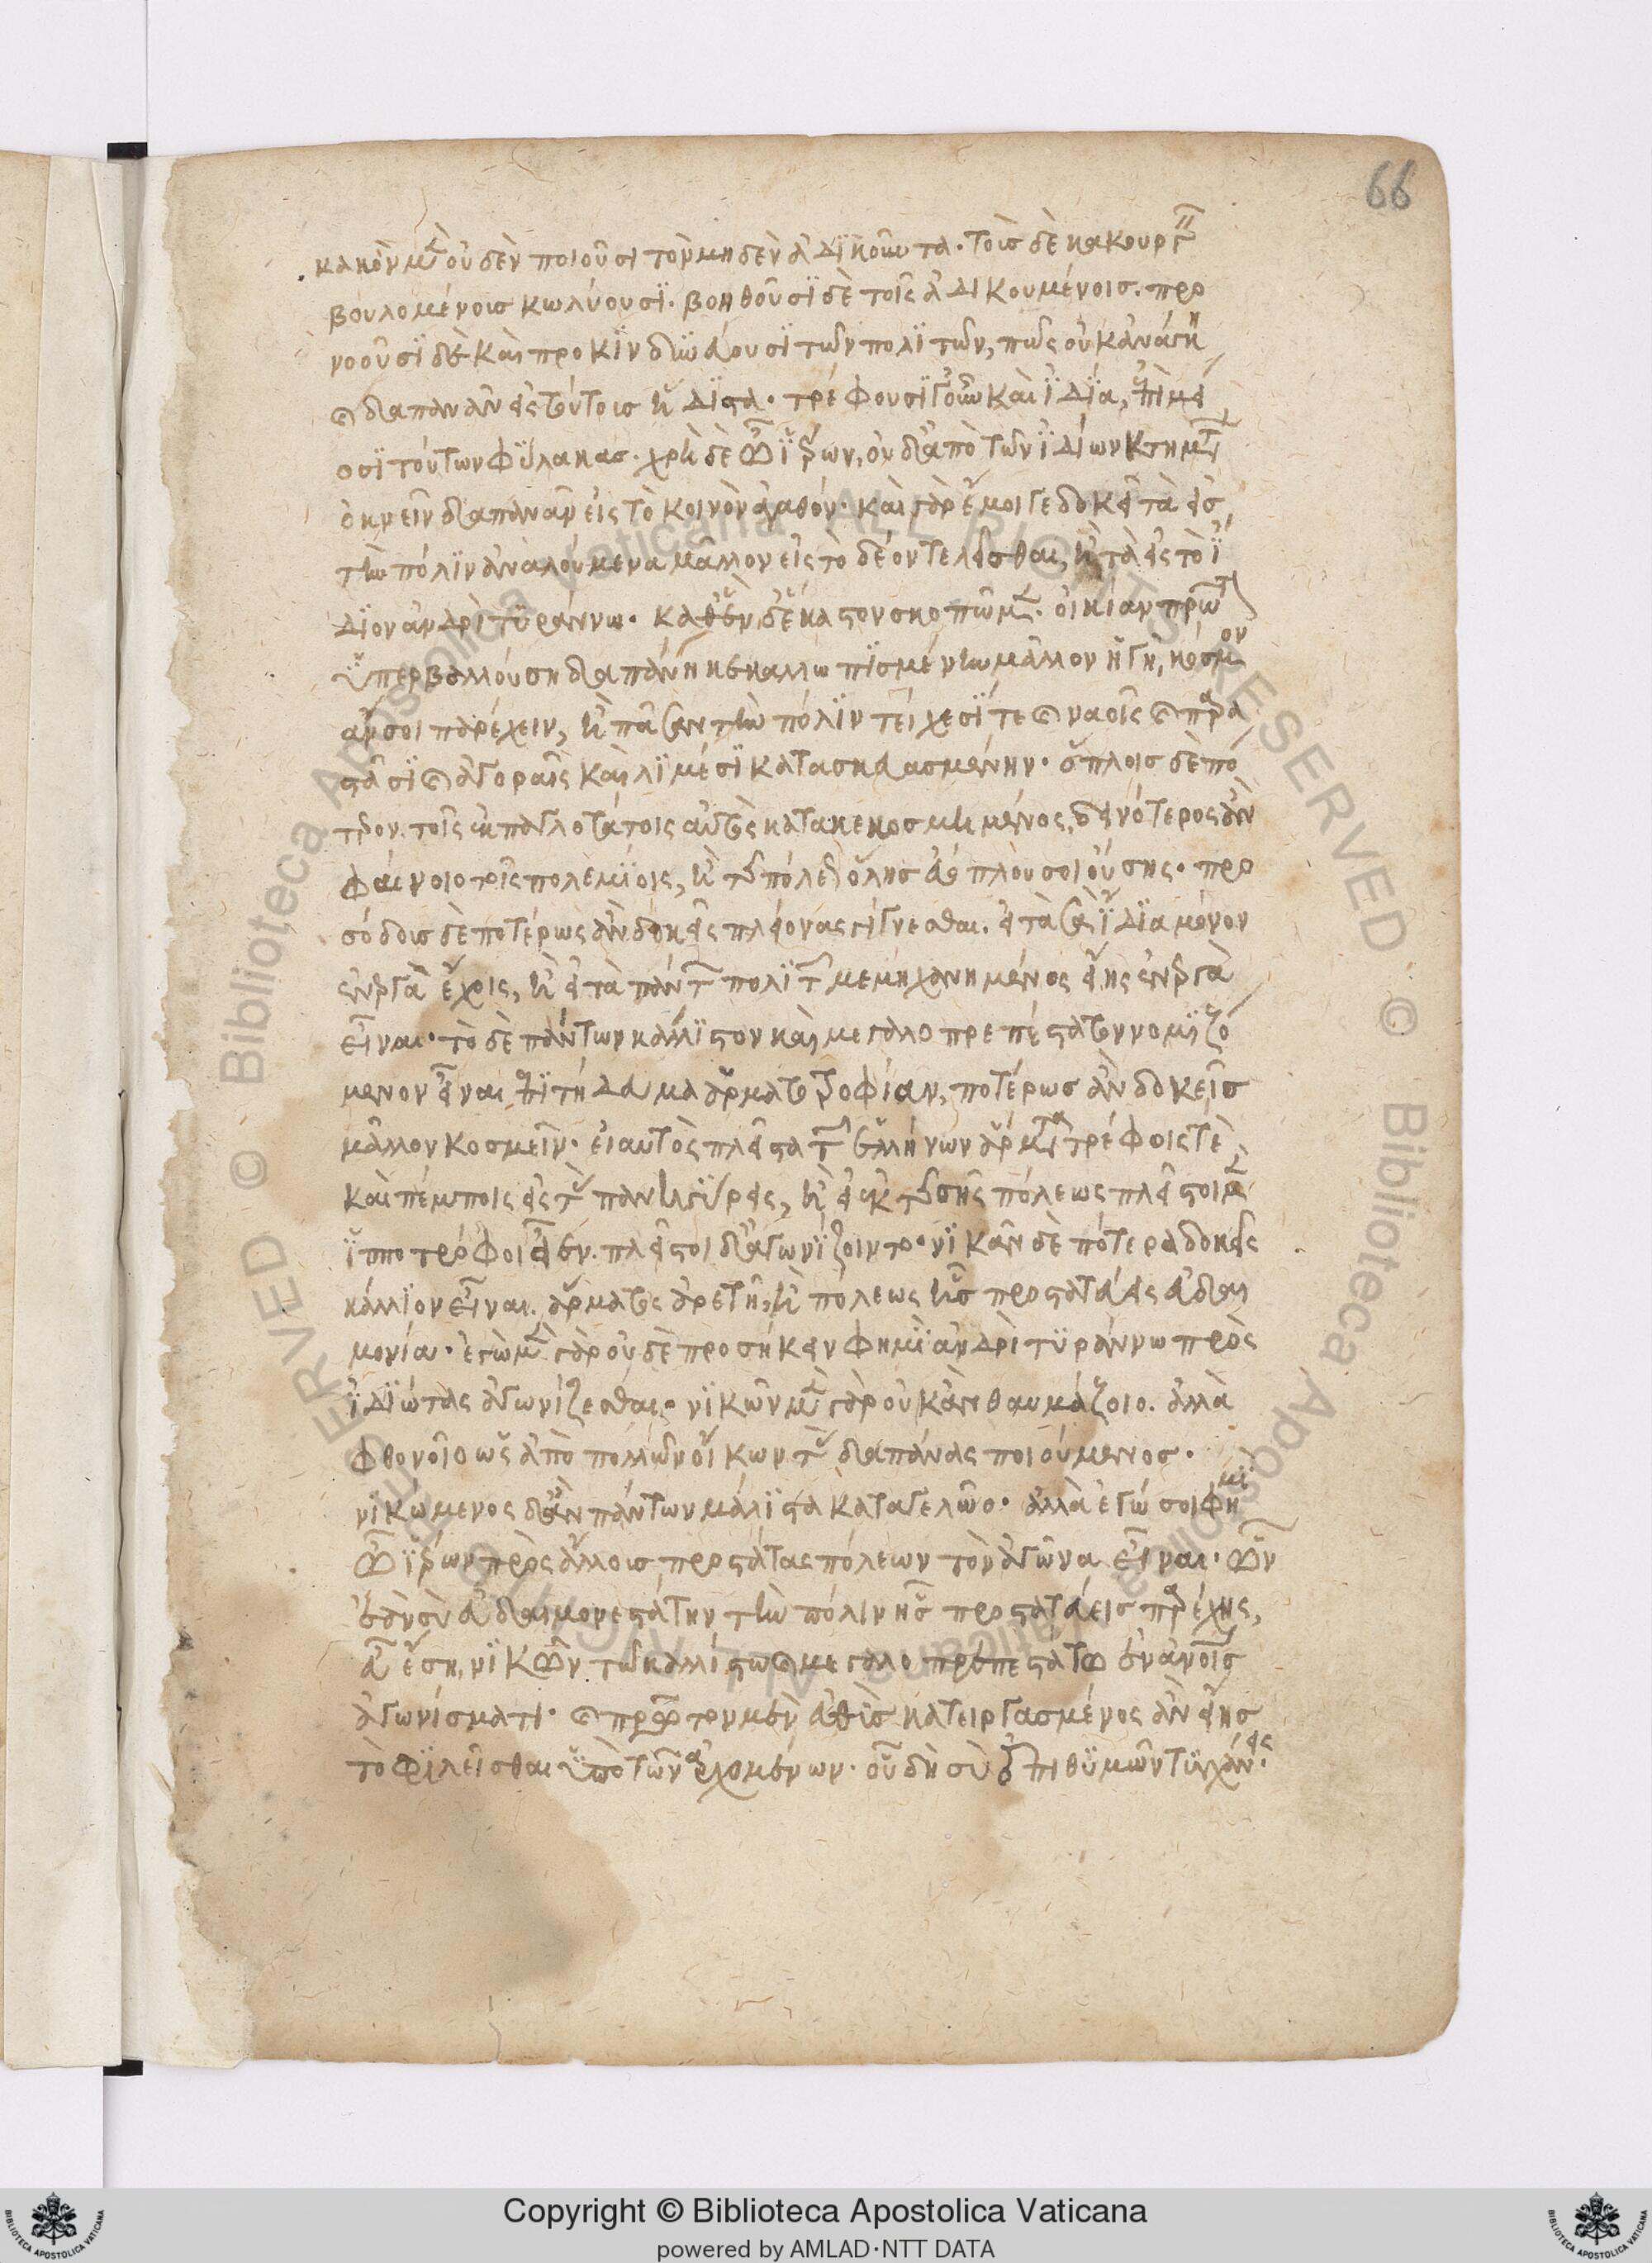 66
κακὸν μὲν οὐδὲν ποιοῦσι τὸν μηδὲν ἀδϊκοῦντα· τοὶς δὲ κακουργεῖν
βουλομένοις κωλύουσϊ· βοηθοῦσϊ δὲ τοῖς ἀδικουμένοις. προ
νοοῦσϊ δὲ καὶ προκϊνδϋνεύουσϊ τῶν πολϊτῶν, πῶς οὐκ ἀνάγκη
καὶ δαπανᾶν εἰς τούτοις ἥδϊστα· τρέφουσϊ γοῦν καὶ ἰδϊα, ἐπὶ μεί
οσϊ τούτων φϋλακας· χρὴ δὲ ὦ ἱέρων, οὐδ' ἀπὸ τῶν ϊδίων κτημάτων
ὀκνεῖν δαπανᾶν εἰς τὸ κοινὸν ἀγαθόν· καὶ γὰρ ἔμοιγε δοκεῖ τὰ εἰς
τὴν πόλϊν ἀναλούμενα μᾶλλον εἰς τὸ δέον τελεῖσθαι, ἢ τὰ εἰς τὸ ἴ
δϊον ἀνδρὶ τϋράννω· καθ' ἓν δ' ἕκαστον σκοπῶμεν. οἰκίαν πρῶτον
ὑπερβαλλούση δαπάνη κεκαλλωπϊσμένην μᾶλλον ἡγῆ, κόσμον
ἄν σοι παρέχειν, ἢ πᾶσαν τὴν πόλϊν τείχεσϊ τε καὶ ναοῖς καὶ παρα
στᾶσϊ καὶ ἀγοραῖς καὶ λϊμέσϊ κατασκευασμένην· ὅπλοις δὲ πό
τερον τοῖς ἐκπαγλοτάτοις αὐτὸς κατακεκοσμημένος, δεινότερος ἂν
φαίνοιο τοῖς πολεμϊοις, ἢ τῆς πόλεως ὅλης εὐόπλου σοι οὔσης· προ
σόδοις δὲ ποτέρως ἂν δοκεῖς πλέονας γίγνεσθαι. εἰ τὰ σὰ ἴδϊα μόνον
ἐνεργὰ ἔχοις, ἢ εἰ τὰ πάντων πολϊτῶν μεμηχανημένος εἴης ἐνεργὰ
εἶναι· τὸ δὲ πάντων κάλλϊστον καὶ μεγαλοπρεπέστατον νομϊζό
μενον εἶναι ἐπιτήδευμα ἁρματοτροφίαν, ποτέρως ἂν δοκεῖς
μᾶλλον κοσμεῖν· εἰ αὐτὸς πλεῖστα τῶν ἑλλήνων ἅρματα τρέφοις τὲ
καὶ πέμποις εἰς τὰς πανηγϋρεις, ἢ εἰ ἐκ τῆς σῆς πόλεως πλεῖστοι μὲν
ἱπποτρόφοι εἶεν. πλεῖστοι δ' ἀγωνϊζοιντο· νϊκᾶν δὲ πότερα δοκεῖς
κάλλϊον εἶναι. ἅρματος ἀρετῆ, ἢ πόλεως ἧς προστατεύεις εὐδαι
μονία· ἐγὼ μὲν γὰρ οὐδὲ προσήκειν φημὶ ἀνδρὶ τϋράννω πρὸς
ἰδϊώτας ἀγωνίζεσθαι· νϊκῶν μὲν γὰρ οὐκ ἂν θαυμάζοιο. ἀλλὰ
φθονοῖο ὡς ἀπὸ πολλῶν οἴκων τὰς δαπάνας ποιούμενος·
νϊκώμενος δ' ἂν πάντων μάλϊστα καταγελῶο· ἀλλὰ ἐγώ σοι φημϊ
ὦ ἱέρων πρὸς ἄλλοις προστάτας πόλεων τὸν ἀγῶνα εἶναι· ὧν
ἐὰν σὺ εὐδαιμονεστάτην τὴν πόλιν ἧς προστατεύεις παρέχης,
εὖ ἔση, νϊκῶν τῶ καλλίστω καὶ μεγαλοπρεπεστάτω ἐν ἀνθρώποις
ἀγωνίσματι· καὶ πρῶτον μὲν εὐθὺς κατειργασμένος ἂν εἴης
τὸ φϊλεῖσθαι ὑπὸ τῶν ἀρχομένων· οὗ δὴ σὺ ἐπιθϋμῶν τϋγχάνεις·
Copyright © Biblioteca Apostolica Vaticana
powered by AMLAD·NTT DATA